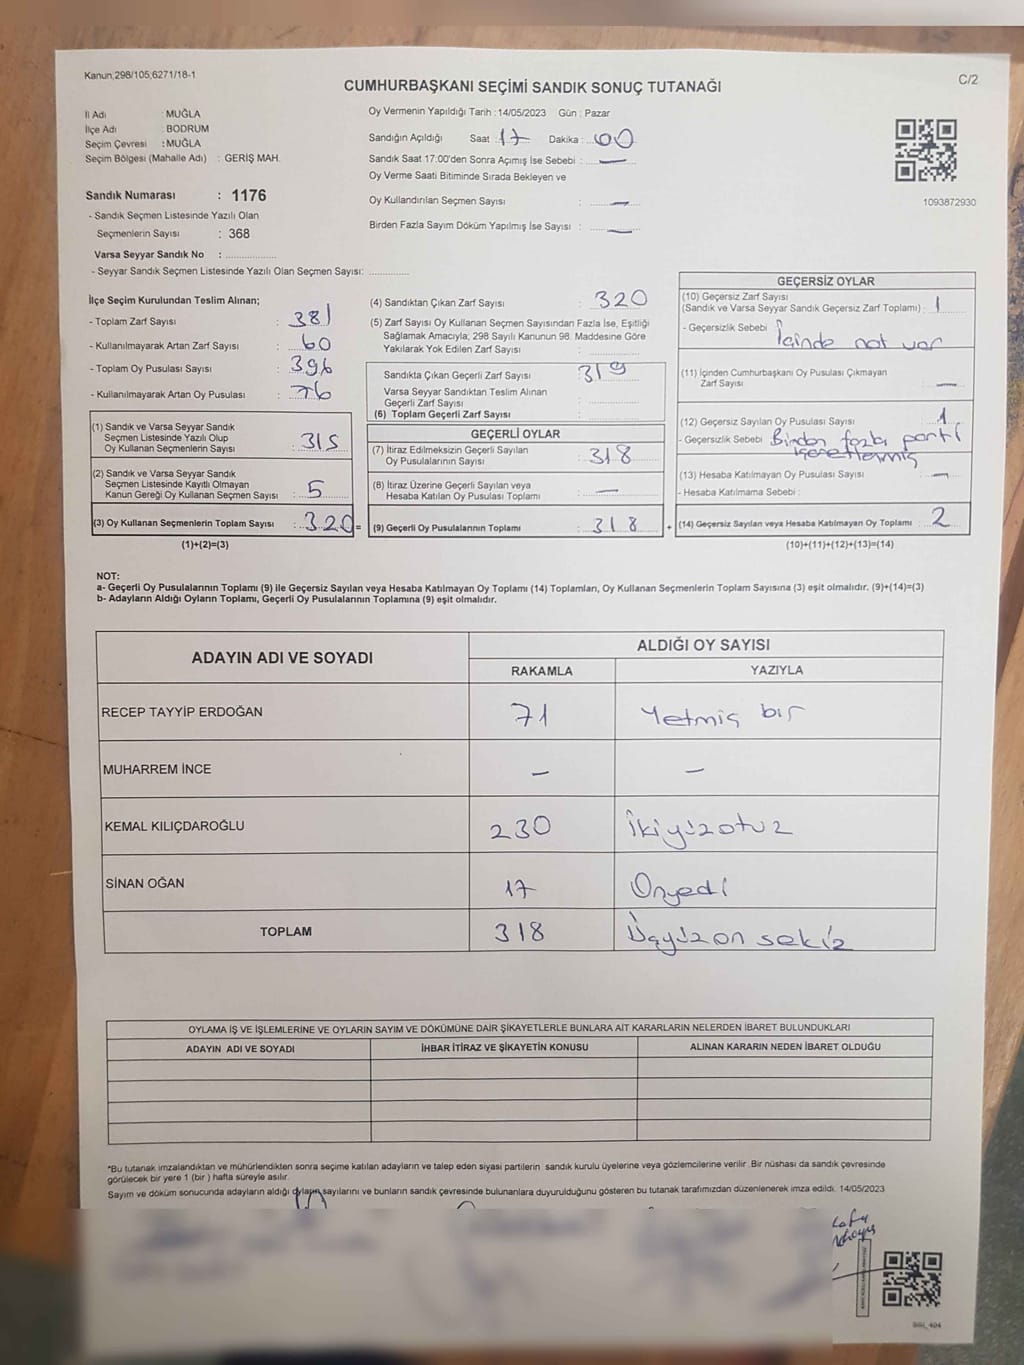 Kanun;298/105;6271/18-1
C/2
CUMHURBAŞKANI SEÇİMİ SANDIK SONUÇ TUTANAĞI
İl Adı : MUĞLA
İlçe Adı : BODRUM
Seçim Çevresi : MUĞLA
Seçim Bölgesi (Mahalle Adı) : GERİŞ MAH.
Sandık Numarası : 1176
- Sandık Seçmen Listesinde Yazılı Olan
Seçmenlerin Sayısı : 368
Varsa Seyyar Sandık No :
- Seyyar Sandık Seçmen Listesinde Yazılı Olan Seçmen Sayısı:
Oy Vermenin Yapıldığı Tarih : 14/05/2023 Gün : Pazar
Sandığın Açıldığı Saat : 17 Dakika : 00
Sandık Saat 17:00'den Sonra Açımış İse Sebebi : —
Oy Verme Saati Bitiminde Sırada Bekleyen ve
Oy Kullandırılan Seçmen Sayısı : —
Birden Fazla Sayım Döküm Yapılmış İse Sayısı : —
1093872930
İlçe Seçim Kurulundan Teslim Alınan;
- Toplam Zarf Sayısı : 381
- Kullanılmayarak Artan Zarf Sayısı : 60
- Toplam Oy Pusulası Sayısı : 396
- Kullanılmayarak Artan Oy Pusulası : 76
(1) Sandık ve Varsa Seyyar Sandık
Seçmen Listesinde Yazılı Olup
Oy Kullanan Seçmenlerin Sayısı : 315
(2) Sandık ve Varsa Seyyar Sandık
Seçmen Listesinde Kayıtlı Olmayan
Kanun Gereği Oy Kullanan Seçmen Sayısı : 5
(3) Oy Kullanan Seçmenlerin Toplam Sayısı : 320 =
(1)+(2)=(3)
(4) Sandıktan Çıkan Zarf Sayısı : 320
(5) Zarf Sayısı Oy Kullanan Seçmen Sayısından Fazla İse, Eşitliği
Sağlamak Amacıyla; 298 Sayılı Kanunun 98. Maddesine Göre
Yakılarak Yok Edilen Zarf Sayısı :
Sandıkta Çıkan Geçerli Zarf Sayısı : 319
Varsa Seyyar Sandıktan Teslim Alınan
Geçerli Zarf Sayısı :
(6) Toplam Geçerli Zarf Sayısı :
GEÇERLİ OYLAR
(7) İtiraz Edilmeksizin Geçerli Sayılan
Oy Pusulalarının Sayısı : 318
(8) İtiraz Üzerine Geçerli Sayılan veya
Hesaba Katılan Oy Pusulası Toplamı : —
(9) Geçerli Oy Pusulalarının Toplamı : 318 +
GEÇERSİZ OYLAR
(10) Geçersiz Zarf Sayısı
(Sandık ve Varsa Seyyar Sandık Geçersiz Zarf Toplamı) : 1
- Geçersizlik Sebebi : İçinde not var
(11) İçinden Cumhurbaşkanı Oy Pusulası Çıkmayan
Zarf Sayısı : —
(12) Geçersiz Sayılan Oy Pusulası Sayısı : 1
- Geçersizlik Sebebi : Birden fazla parti
işaretlemiş
(13) Hesaba Katılmayan Oy Pusulası Sayısı : —
- Hesaba Katılmama Sebebi :
(14) Geçersiz Sayılan veya Hesaba Katılmayan Oy Toplamı : 2
(10)+(11)+(12)+(13)=(14)
NOT:
a- Geçerli Oy Pusulalarının Toplamı (9) ile Geçersiz Sayılan veya Hesaba Katılmayan Oy Toplamı (14) Toplamları, Oy Kullanan Seçmenlerin Toplam Sayısına (3) eşit olmalıdır. (9)+(14)=(3)
b- Adayların Aldığı Oyların Toplamı, Geçerli Oy Pusulalarının Toplamına (9) eşit olmalıdır.
ADAYIN ADI VE SOYADI
ALDIĞI OY SAYISI
RAKAMLA YAZIYLA
RECEP TAYYİP ERDOĞAN 71 Yetmiş bir
MUHARREM İNCE — —
KEMAL KILIÇDAROĞLU 230 İkiyüzotuz
SİNAN OĞAN 17 Onyedi
TOPLAM 318 Üçyüzon sekiz
OYLAMA İŞ VE İŞLEMLERİNE VE OYLARIN SAYIM VE DÖKÜMÜNE DAİR ŞİKAYETLERLE BUNLARA AİT KARARLARIN NELERDEN İBARET BULUNDUKLARI
ADAYIN ADI VE SOYADI İHBAR İTİRAZ VE ŞİKAYETİN KONUSU ALINAN KARARIN NEDEN İBARET OLDUĞU
*Bu tutanak imzalandıktan ve mühürlendikten sonra seçime katılan adayların ve talep eden siyasi partilerin sandık kurulu üyelerine veya gözlemcilerine verilir .Bir nüshası da sandık çevresinde
görülecek bir yere 1 (bir ) hafta süreyle asılır.
Sayım ve döküm sonucunda adayların aldığı oyların sayılarını ve bunların sandık çevresinde bulunanlara duyurulduğunu gösteren bu tutanak tarafımızdan düzenlenerek imza edildi. 14/05/2023